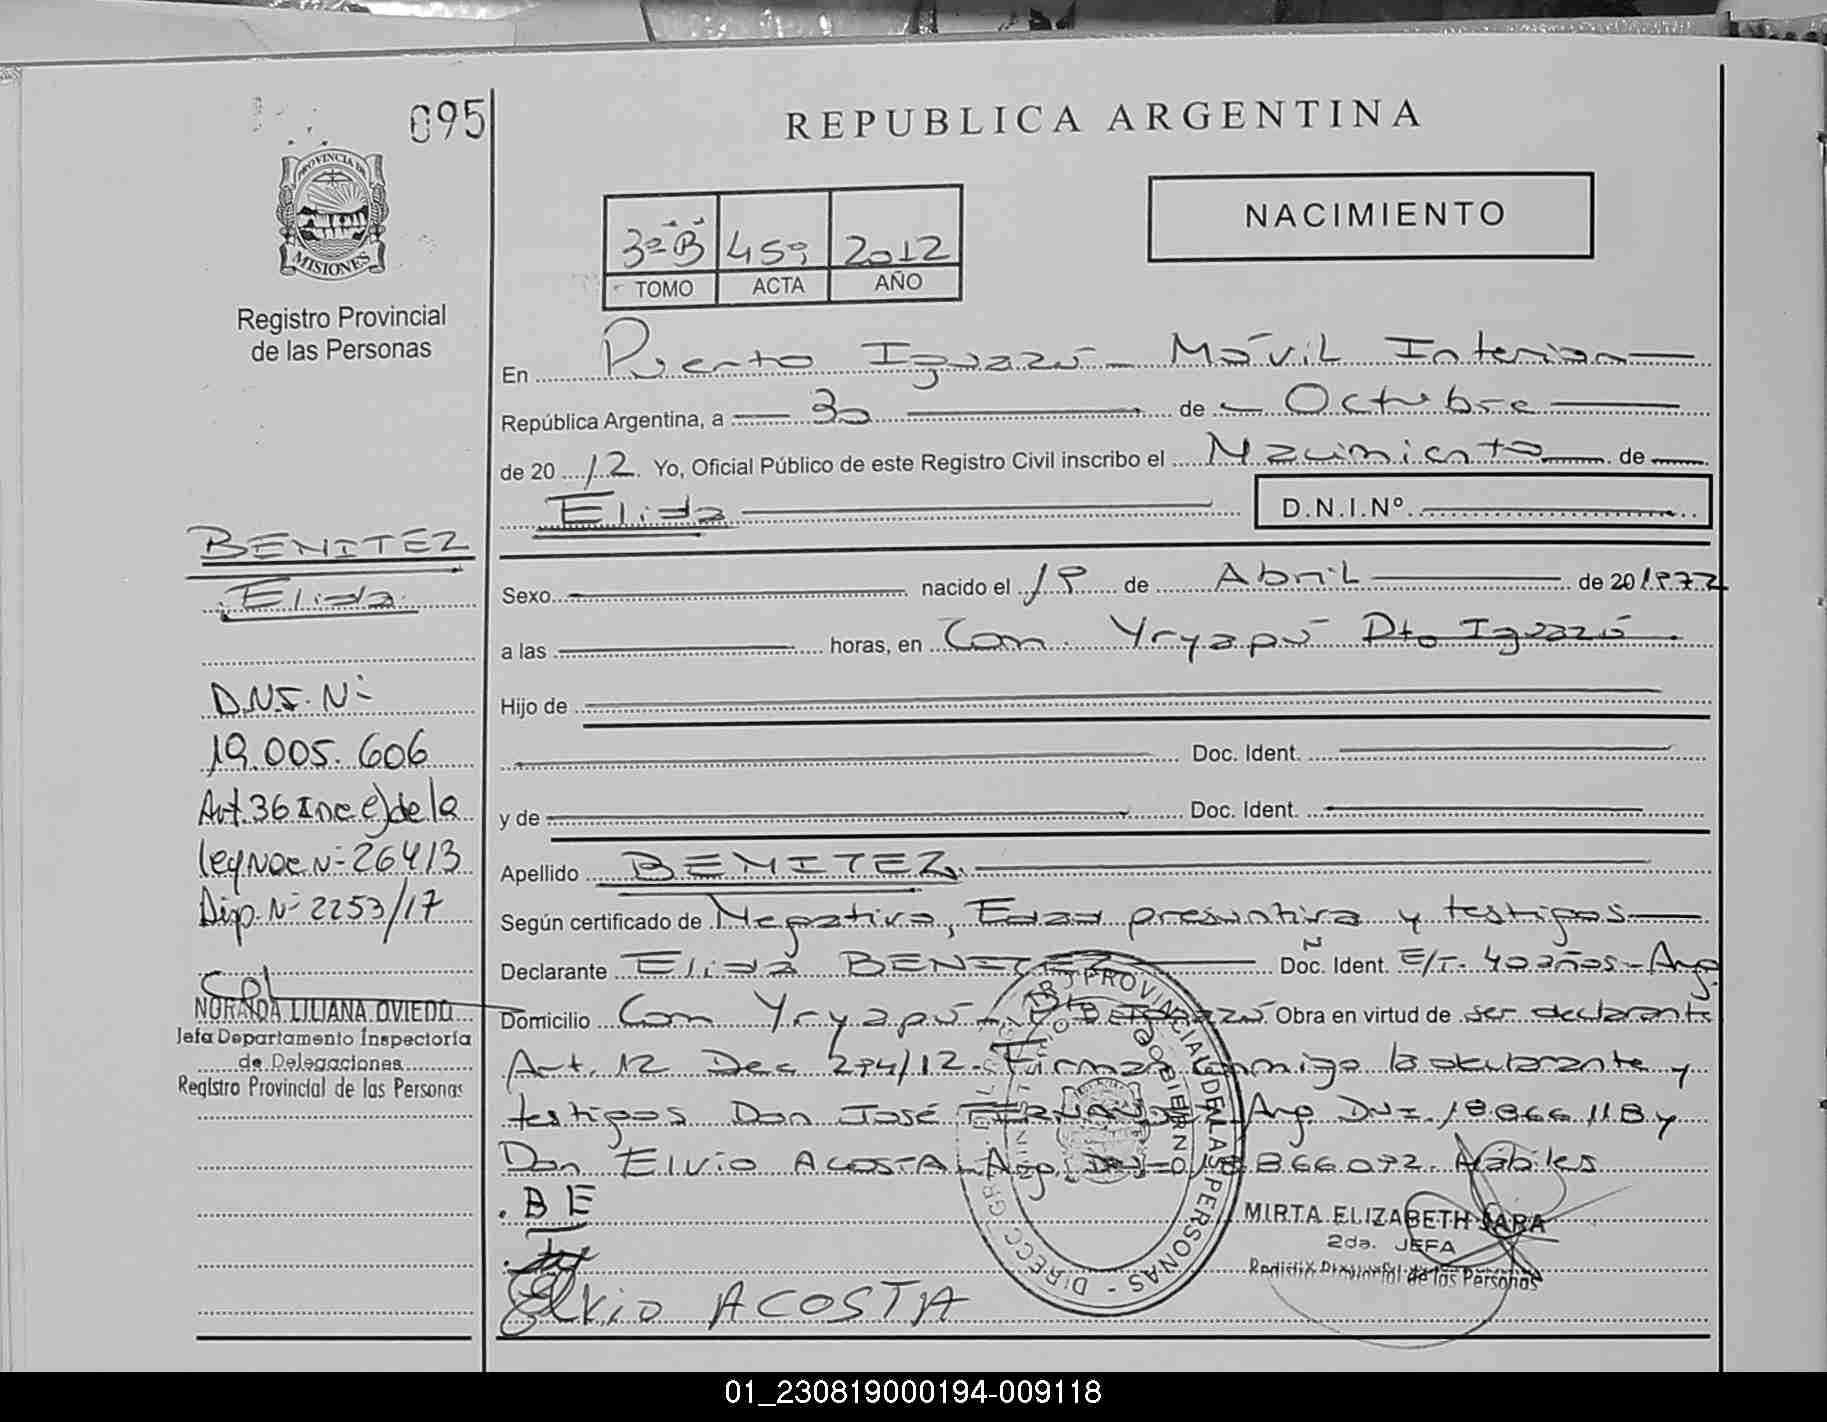 095
REPUBLICA ARGENTINA
PROVINCIA DE
MISIONES
Registro Provincial
de las Personas
3º B 459 2012
TOMO ACTA AÑO
NACIMIENTO
En Puerto Iguazú - Móvil Interior
República Argentina, a 30 de Octubre
de 20 12. Yo, Oficial Público de este Registro Civil inscribo el Nacimiento de
Elida
D.N.I.Nº
Sexo nacido el 19 de Abril de 20 1972
a las horas, en Com. Yryapú Dto Iguazú.
Hijo de
Doc. Ident.
y de Doc. Ident.
Apellido BENITEZ.
Según certificado de Negativa, Edad presuntiva y testigos
Declarante Elida BENITEZ Doc. Ident. E/T. 40 años - Arg
Domicilio Com Yryapú - Dto Iguazú Obra en virtud de ser declarante
Art. 12 Dec 274/12. Firman conmigo la declarante y
testigos Don José FERNANDEZ Arg. DNI 18.866.118 y
Don Elvio ACOSTA Arg. DNI 18.866.072. Hábiles
. B E
Elvio ACOSTA
MIRTA ELIZABETH JARA
2da. JEFA
Registro Provincial de las Personas
BENITEZ
Elida
D.N.I. Nº
19.005.606
Art. 36 Inc e) de la
Ley Nac Nº 26413
Disp. Nº 2253/17
NORANDA LILIANA OVIEDO
Jefa Departamento Inspectoría
de Delegaciones
Registro Provincial de las Personas
01_230819000194-009118